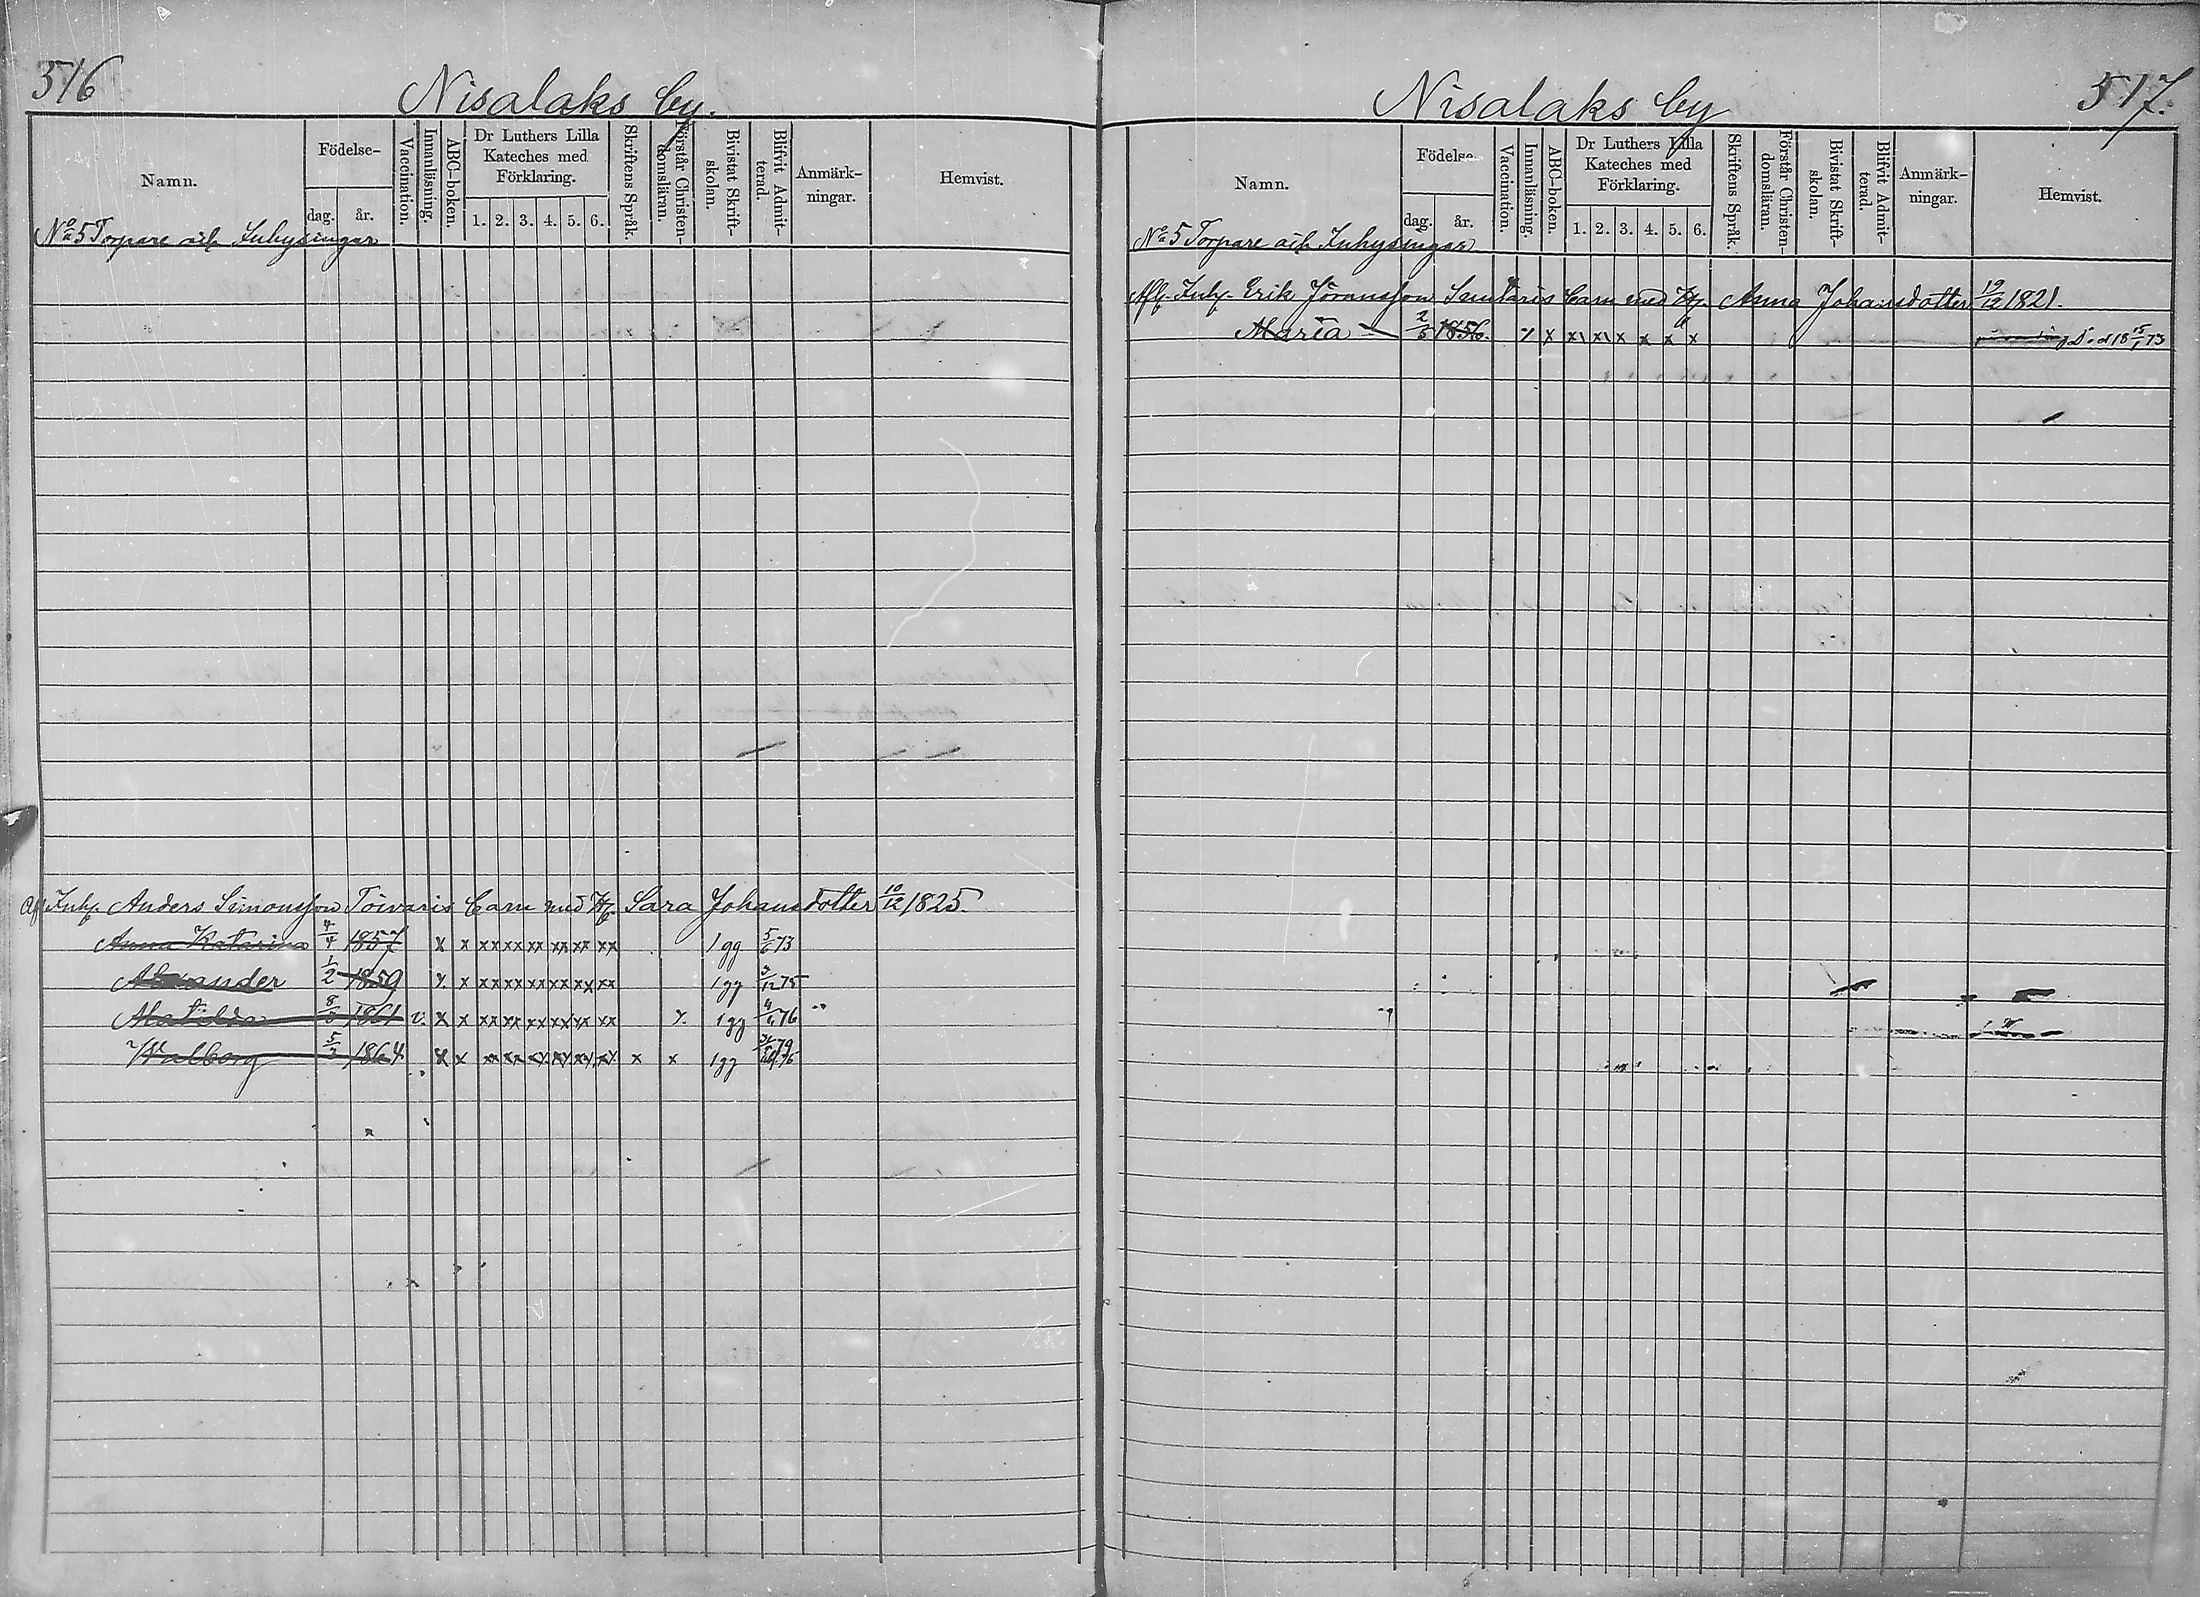 516
Nisalaks by.
Namn. Födelse- dag. år. Vaccination. Innanläsning. ABC-boken. Dr Luthers Lilla Kateches med Förklaring. 1. 2. 3. 4. 5. 6. Skriftens Språk. Förstår Christen-domsläran. Bivistat Skrift-skolan. Blifvit Admit-terad. Anmärk-ningar. Hemvist.
No 5 Torpare och Inhysingar
Afl. Inh. Anders Simonsson Toivaris barn med H. Sara Johansdotter 10/12 1825.
Anna Katarina 4/4 1857 x x xx xx xx xx xx xx 1 gg 5/6 73
Alexander 1/2 1859 x x xx xx xx xx xx xx 1 gg 3/12 75
Matilda 1861 v. x x xx xx xx xx xx xx x. 1 gg 76
Walborg 5/3 1864 x x x x 1 gg 79
517.
Nisalaks by
Namn. Födelse- dag. år. Vaccination. Innanläsning. ABC-boken. Dr Luthers Lilla Kateches med Förklaring. 1. 2. 3. 4. 5. 6. Skriftens Språk. Förstår Christen-domsläran. Bivistat Skrift-skolan. Blifvit Admit-terad. Anmärk-ningar. Hemvist.
No 5 Torpare och Inhysingar
Afl. Inh. Erik Jöransson barn med H. Anna Johansdotter 19/12 1821.
Maria 2/5 1856. x x x\ x\ x x x x Död 18 15/1 73